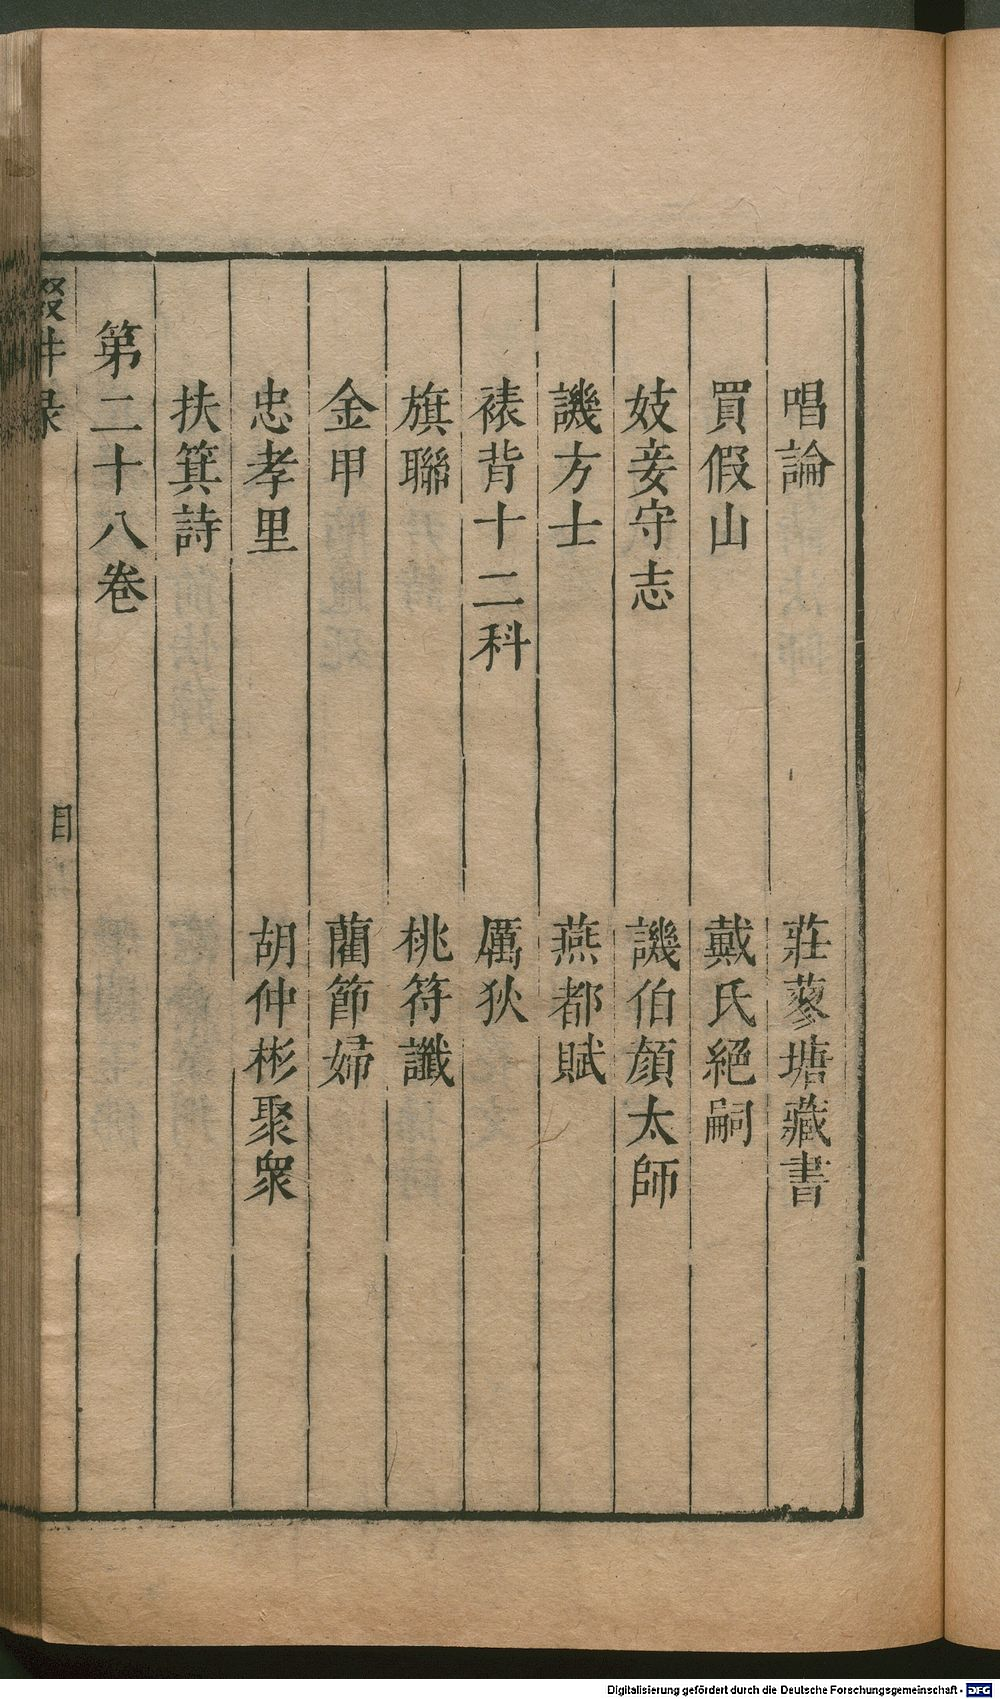 唱論　莊蓼塘藏書
買假山　戴氏絕嗣
妓妾守志　譏伯顏太師
譏方士　燕都賦
裱背十二科　厲狄
旗聯　桃符讖
金甲　藺節婦
忠孝里　胡仲彬聚衆
扶箕詩
第二十八卷
輟耕录　目
Digitalisierung gefördert durch die Deutsche Forschungsgemeinschaft - DFG